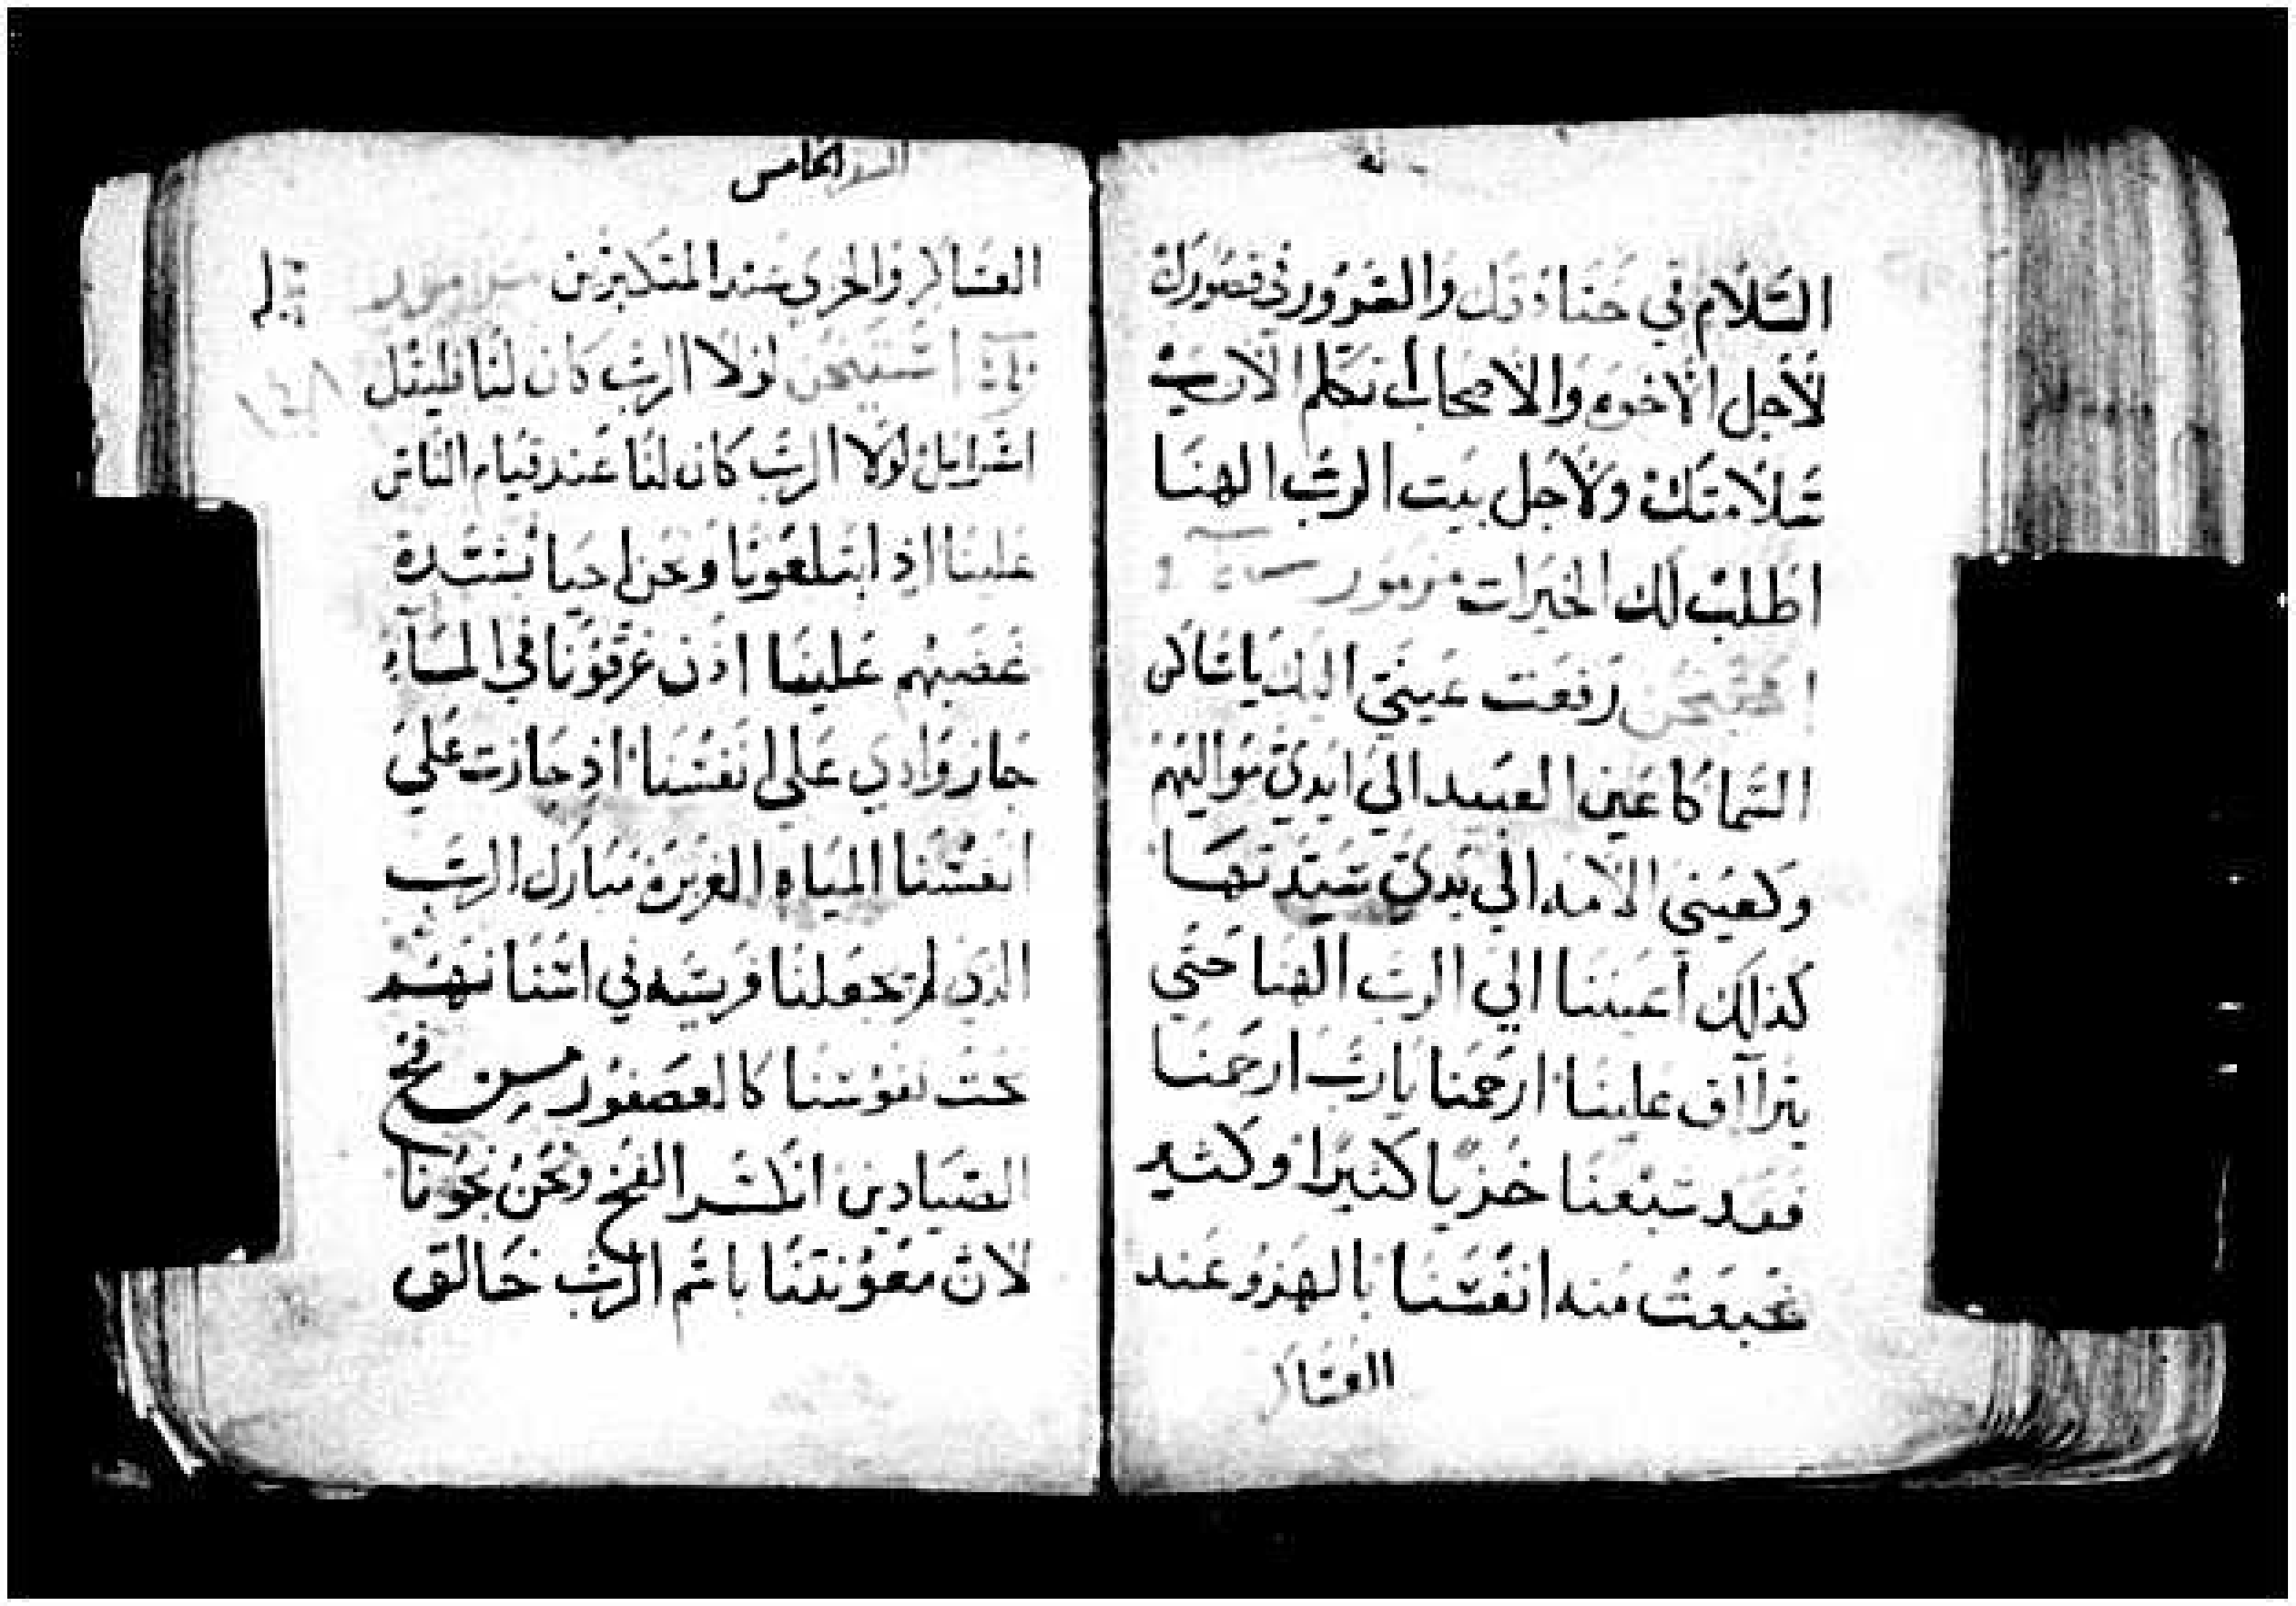 السَّلام في خنادقك والسرور في قصورك
لأجل الاخوه والاصحاب أتكلم الان ب
سلامتك ولأجل بيت الرب الهنا
اطلب لك الخيرات مزمور
رفعت عيني اليك يا ساكن
السما كاعين العبيد الي ايدي مواليهم
وكعيني الامه الي يدي سيدتها
كذلك أعيننا الي الرب الهنا حتي
يتراآف علينا ارحمنا يارب ارحمنا
فقد شبعنا خزيا كثيرا وكثير
شبعت منه انفسنا بالهزو عند
العسا
الخامس
العسا والخزي عند المتكبرين مزمور
لولا الرب كان لنا فليقل
اسرايل لولا الرب كان لنا عند قيام الناس
علينا اذ ابتلعونا ونحن احيا بشدة
غضبهم علينا اذن غرقونا في الماء
جاز وادي علي انفسنا اذ جازت علي
انفسنا المياه الغزيره مبارك الرب
الذي لم يجعلنا فريسه في اسنانهم
نجت نفوسنا كالعصفور من فخ
الصيادين انكسر الفخ ونحن نجونا
لان معونتنا باسم الرب خالق